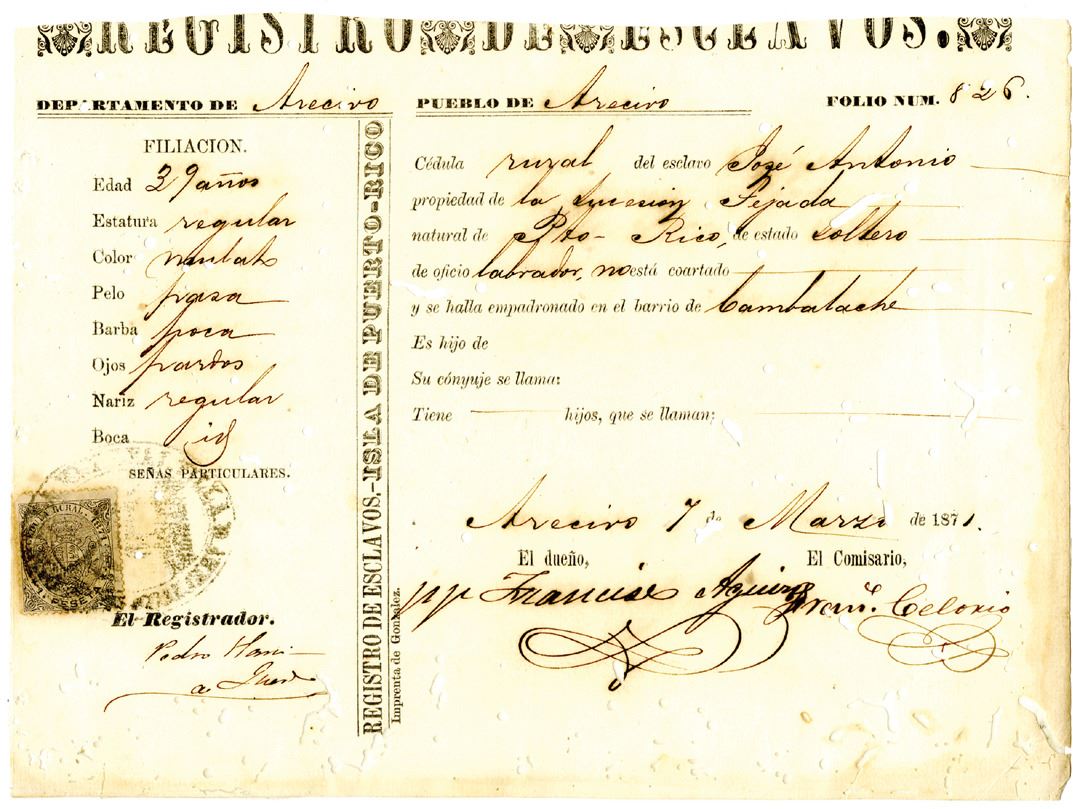 REGISTRO DE ESCLAVOS.
DEPARTAMENTO DE Arecivo
PUEBLO DE Arecivo
FOLIO NUM. 826.
FILIACION.
Edad 39 años
Estatura regular
Color mulato
Pelo pasa
Barba poca
Ojos pardos
Nariz regular
Boca id
SEÑAS PARTICULARES.
El Registrador.
Pedro
REGISTRO DE ESCLAVOS.-ISLA DE PUERTO-RICO
Imprenta de Gonzalez.
Cédula rural del esclavo José Antonio
propiedad de la Sucesion Tejada
natural de Pto- Rico, de estado soltero
de oficio labrador, no está coartado
y se halla empadronado en el barrio de Cambalache
Es hijo de
Su cónyuje se llama:
Tiene hijos, que se llaman:
Arecivo 7 de Marzo de 1871.
El dueño,
El Comisario,
pp Francisco
Celonio